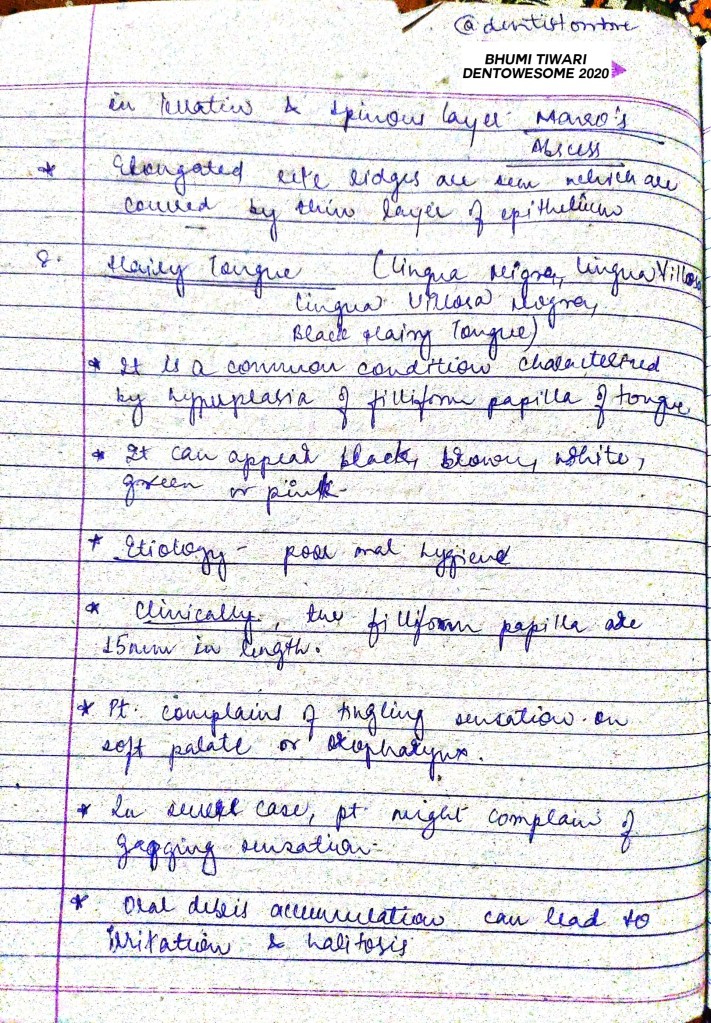 @dentistonstore
BHUMI TIWARI
DENTOWESOME 2020
in keratin & spinous layer. Monro's
Abscess
* Elongated rete ridges are seen which are
covered by thin layer of epithelium
8. Hairy Tongue (lingua Nigra, lingua Villosa
lingua Villosa Nogra,
Black Hairy Tongue)
* It is a common condition characterised
by hyperplasia of filliform papilla of tongue
* It can appear black, brown, white,
green or pink.
* Etiology - poor oral hygiene
* Clinically, the filliform papilla are
15mm in length.
* Pt. complains of tingling sensation on
soft palate or oropharynx.
* In severe case, pt might complain of
gagging sensation.
* Oral debris accumulation can lead to
irritation & halitosis